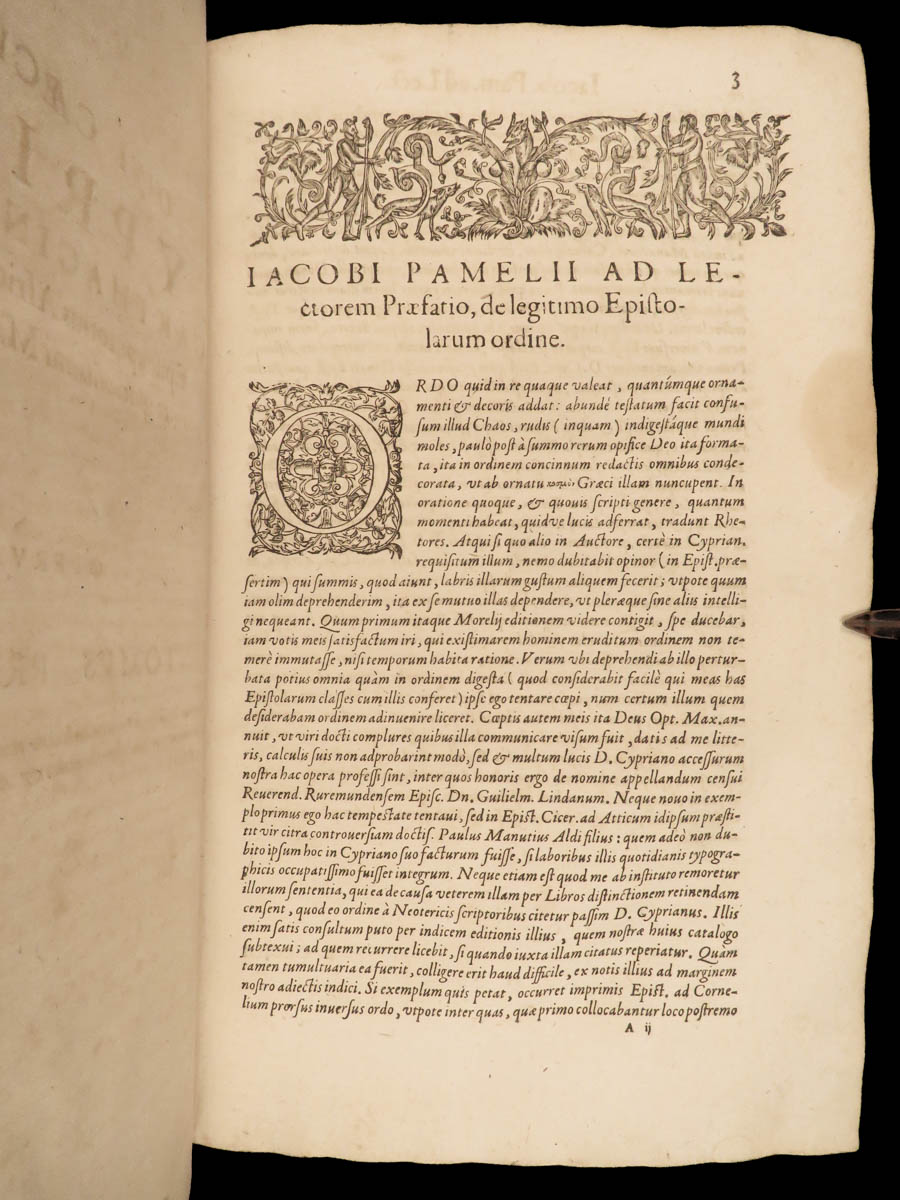 3
IACOBI PAMELII AD LE-
ctorem Præfatio, de legitimo Episto-
larum ordine.
ORDO quid in re quaque valeat, quantúmque orna-
menti & decoris addat: abundé testatum facit confu-
sum illud Chaos, rudis (inquam) indigestáque mundi
moles, paulò pòst à summo rerum opifice Deo ita forma-
ta, ita in ordinem concinnum redactis omnibus conde-
corata, vt ab ornatu κοσμὸν Græci illam nuncupent. In
oratione quoque, & quouis scripti genere, quantum
momenti habeat, quidve lucis adferrat, tradunt Rhe-
tores. Atqui si quo alio in Auctore, certè in Cyprian.
requisitum illum, nemo dubitabit opinor (in Epist. præ-
sertim) qui summis, quod aiunt, labris illarum gustum aliquem fecerit; vtpote quum
iam olim deprehenderim, ita ex se mutuo illas dependere, vt pleræque sine aliis intelli-
gi nequeant. Quum primum itaque Morelij editionem videre contigit, spe ducebar,
iam votis meis satisfactum iri, qui existimarem hominem eruditum ordinem non te-
merè immutasse, nisi temporum habita ratione. Verum vbi deprehendi ab illo pertur-
bata potius omnia quàm in ordinem digesta (quod considerabit facilè qui meas has
Epistolarum classes cum illis conferet) ipse ego tentare cœpi, num certum illum quem
desiderabam ordinem adinuenire liceret. Cœptis autem meis ita Deus Opt. Max. an-
nuit, vt viri docti complures quibus illa communicare visum fuit, datis ad me litte-
ris, calculis suis non adprobarint modò, sed & multum lucis D. Cypriano accessurum
nostra hac opera professi sint, inter quos honoris ergo de nomine appellandum censui
Reuerend. Ruremundensem Episc. Dn. Guilielm. Lindanum. Neque nouo in exem-
plo primus ego hac tempestate tentaui, sed in Epist. Cicer. ad Atticum idipsum præsti-
tit vir citra controuersiam doctiss. Paulus Manutius Aldi filius: quem adeò non du-
bito ipsum hoc in Cypriano suo facturum fuisse, si laboribus illis quotidianis typogra-
phicis occupatissimo fuisset integrum. Neque etiam est quod me ab instituto remoretur
illorum sententia, qui ea de causa veterem illam per Libros distinctionem retinendam
censent, quod eo ordine à Neotericis scriptoribus citetur passim D. Cyprianus. Illis
enim satis consultum puto per indicem editionis illius, quem nostræ huius catalogo
subtexui; ad quem recurrere licebit, si quando iuxta illam citatus reperiatur. Quàm
tamen tumultuaria ea fuerit, colligere erit haud difficile, ex notis illius ad marginem
nostro adiectis indici. Si exemplum quis petat, occurret imprimis Epist. ad Corne-
lium prorsus inuersus ordo, vtpote inter quas, quæ primo collocabantur loco postremo
A ij